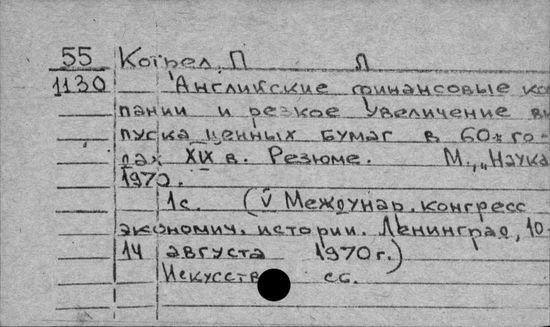 55 Котрел, П Л
1130 Английские финансовые ком
пании и резкое увеличение вы
пуска ценных бумаг в 60-х го-
дах XIX в. Резюме. М., „Наука
1970.
1с. (V Междунар. конгресс
экономич. истории. Ленинград, 10-
14 августа 1970г.)
Искусств сб.